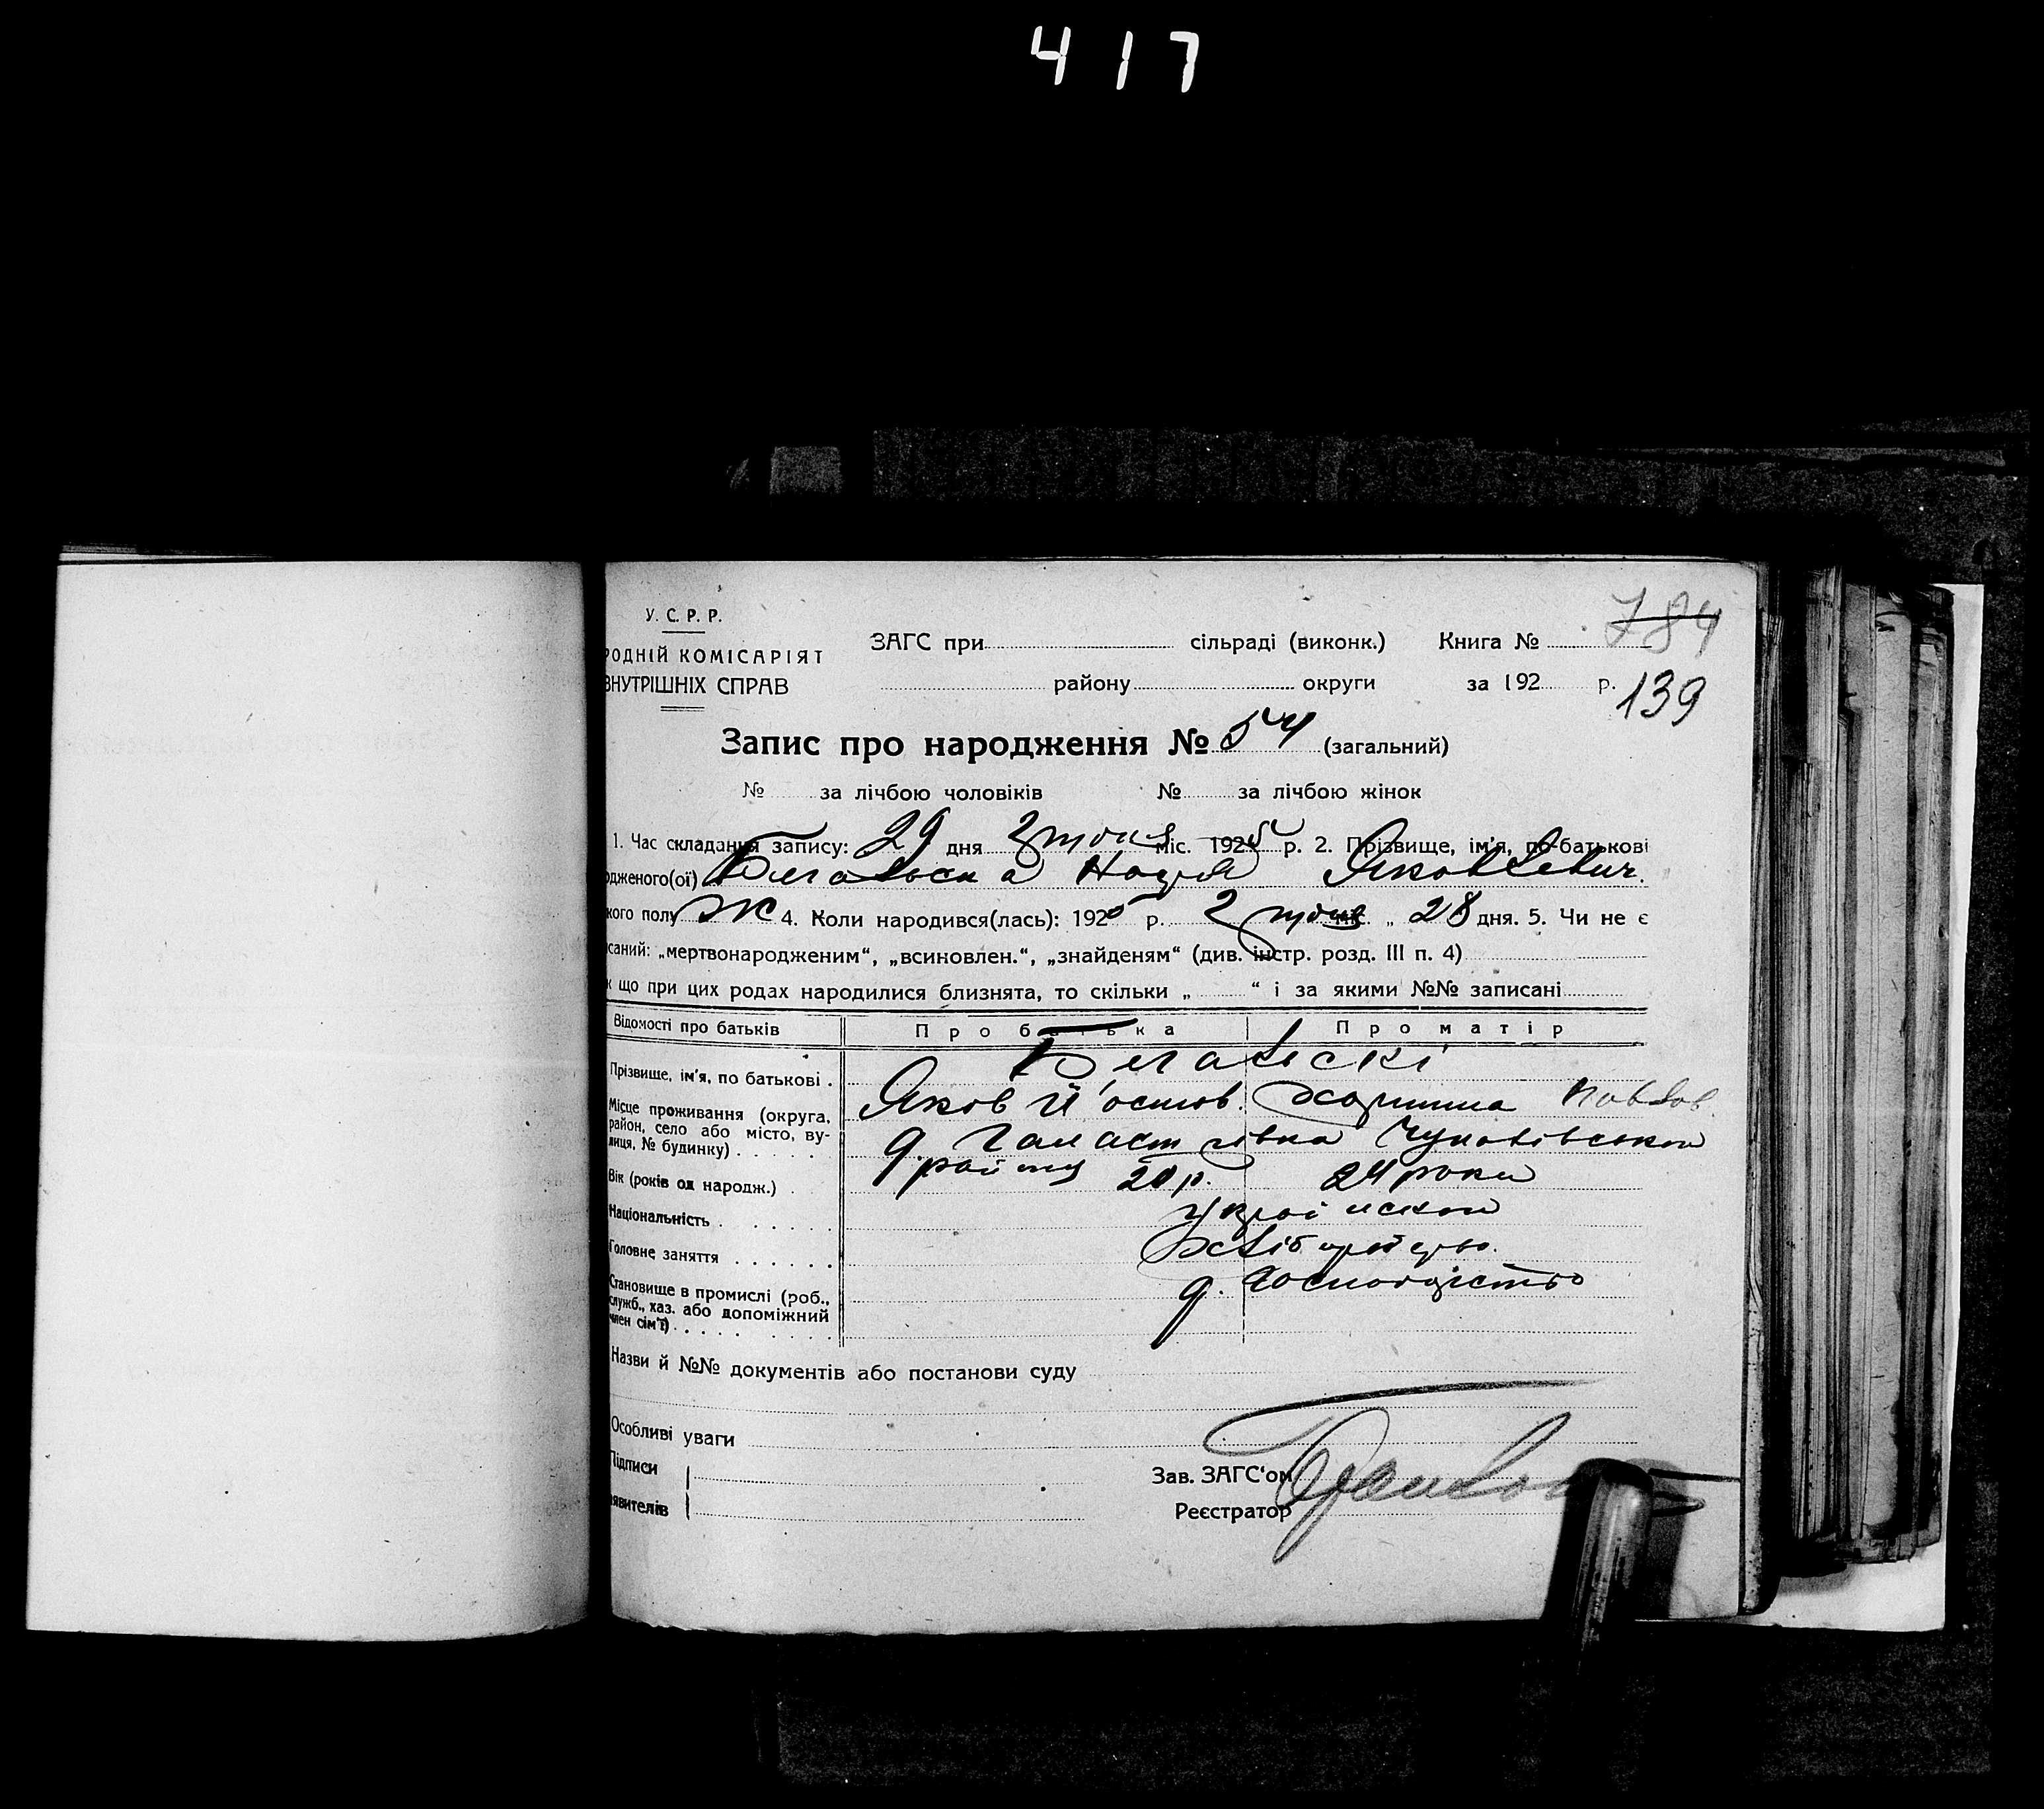 417
У. С. Р. Р.
РОДНІЙ КОМІСАРІЯТ
ВНУТРІШНІХ СПРАВ
ЗАГС при сільраді (виконк.) Книга № 784
району округи за 192 р. 139
Запис про народження № 54 (загальний)
№ за лічбою чоловіків № за лічбою жінок
1. Час складання запису: 29 дня міс. 1925 р. 2. Прізвище, ім'я, по-батькові
одженого(ої) Надія Яковлевич.
кого полу Ж 4. Коли народився(лась): 1925 р. „ 28 дня. 5. Чи не є
саний: „мертвонародженим“, „всиновлен.“, „знайденям“ (див. інстр. розд. III п. 4)
к що при цих родах народилися близнята, то скільки „ “ і за якими №№ записані
Відомості про батьків Про батька Про матір
Прізвище, ім'я, по батькові .
Яков Павлов.
Місце проживання (округа, район, село або місто, вулиця, № будинку) . . . . . д. району
Вік (років од народж.) . 20 р. 24 роки
Національність . . . . . . .
Головне заняття . . . . . . хліборобство.
Становище в промислі (роб., служб., хаз. або допоміжний член сім'ї) . . . . . . . . . д. господарство
Назви й №№ документів або постанови суду
Особливі уваги
Підписи
явителів
Зав. ЗАГС'ом
Реєстратор